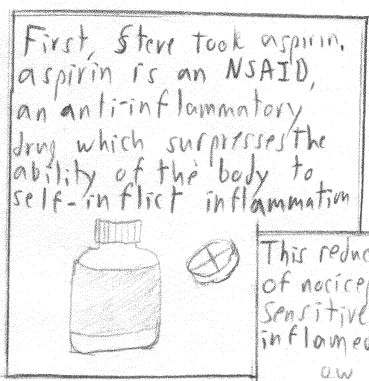 First, Steve took aspirin.
aspirin is an NSAID,
an anti-inflammatory
drug which surpresses the
ability of the body to
self-inflict inflammation
This
of
Sensitive
inflamed